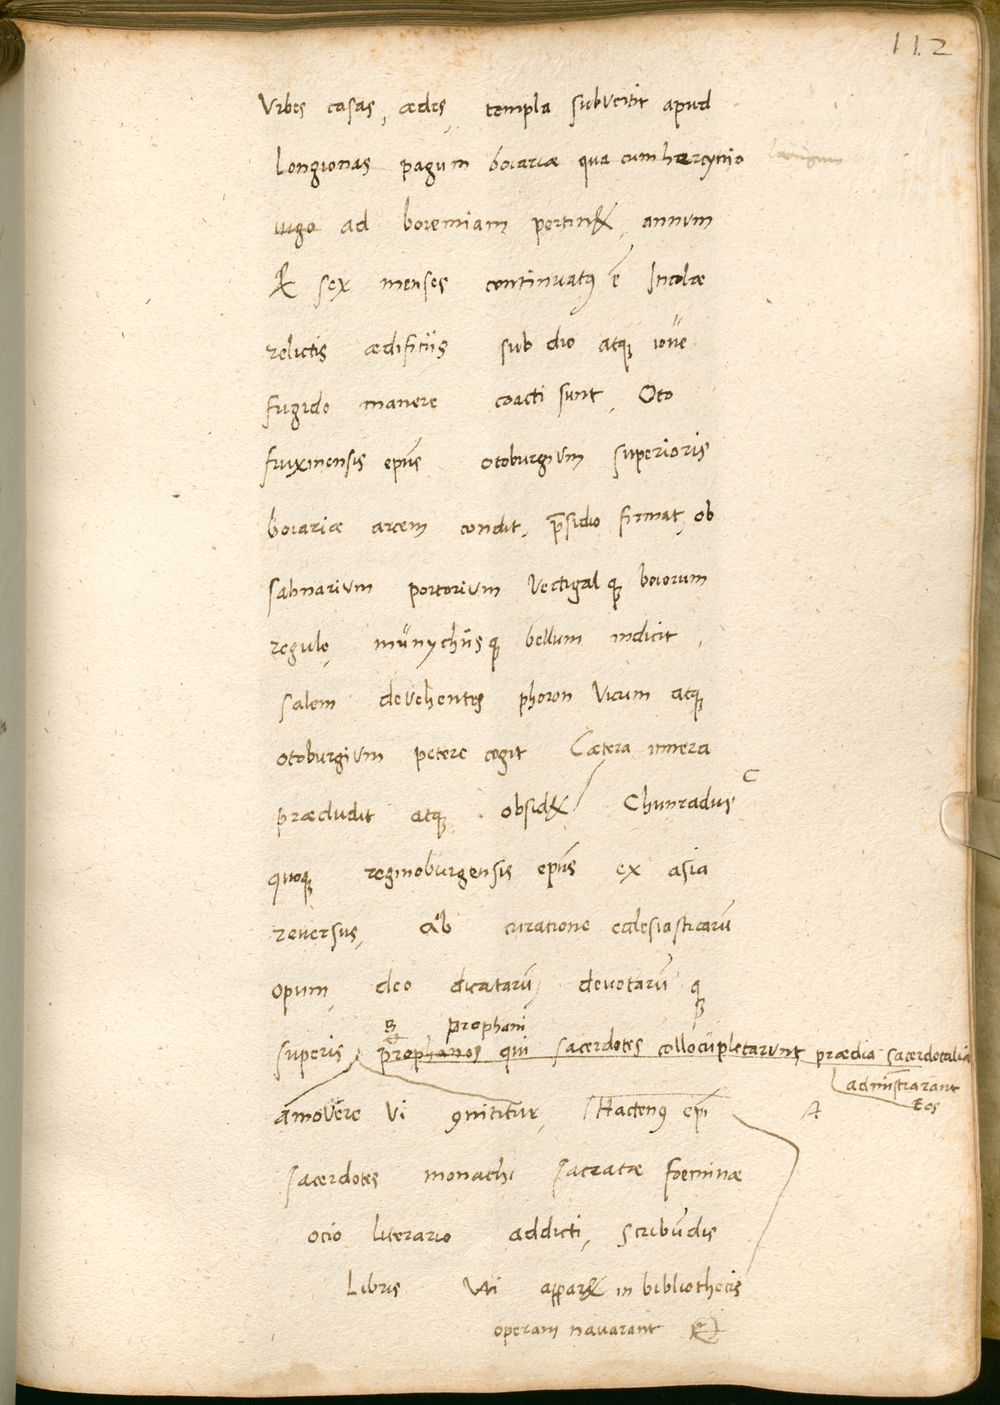 112
Urbes casas, ædes, templa subvertit apud
Longionas pagum boiariæ qua cum hercynio
iugo ad boremiam pertin&, annum
& sex menses continuatus ē Incolæ
relictis ædificiis sub dio atque ioue
frigido manere coacti sunt. Oto
fruxinensis epūs otoburgium superioris
boiariæ arcem condit, p̄sidio firmat, ob
salinarium portorium Vectigalque boiorum
regulo, münychiisque bellum indicit,
salem devehentes phoron vicum atque
otoburgium petere cogit Cætera itinera
præcludit atque obsid& Chunradus C
quoque reginoburgensis epūs ex asia
reversus, ab curatione ecclesiasticarū
opum, deo dicatarū, devotarū que
B prophani
superis prophanos qui sacerdotes collocupletarunt prædia sacerdotalia
administrarant
Eos
amovere vi 9nititur, Hacten9 epī A
sacerdotes monachi sacratæ foeminæ
ocio literario addicti, scribūdis
Libris Uti appar& in bibliothecis
operam navarant